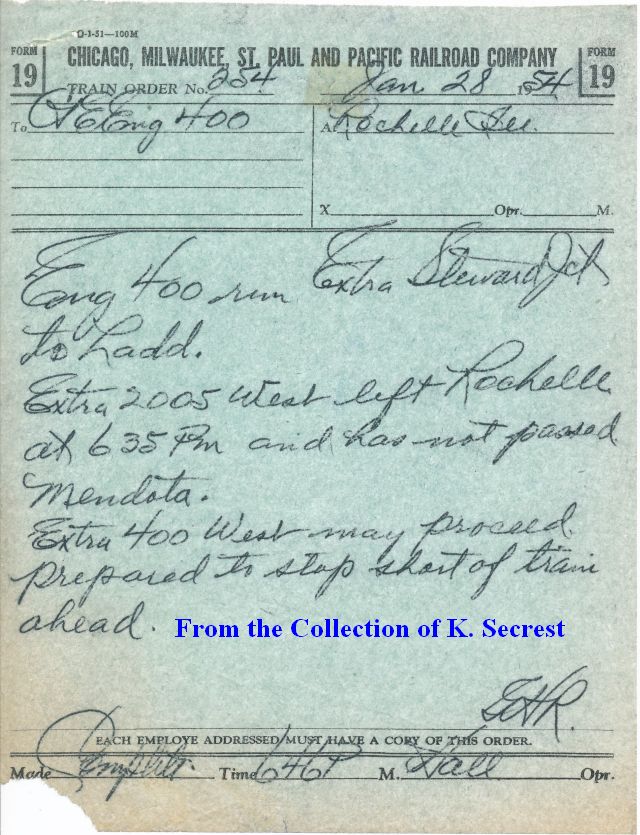 O-1-51—100M
FORM 19
CHICAGO, MILWAUKEE, ST. PAUL AND PACIFIC RAILROAD COMPANY
FORM 19
TRAIN ORDER No. 254 Jan 28 1954
To C&E Eng 400 At Rochelle Ill.
X Opr. M.
Eng 400 run Extra Steward Jct
to Ladd.
Extra 2005 West left Rochelle
at 635 Pm and has not passed
Mendota.
Extra 400 West may proceed
prepared to stop short of train
ahead.
From the Collection of K. Secrest
EACH EMPLOYE ADDRESSED MUST HAVE A COPY OF THIS ORDER.
Made Complete Time 646P M. Hall Opr.